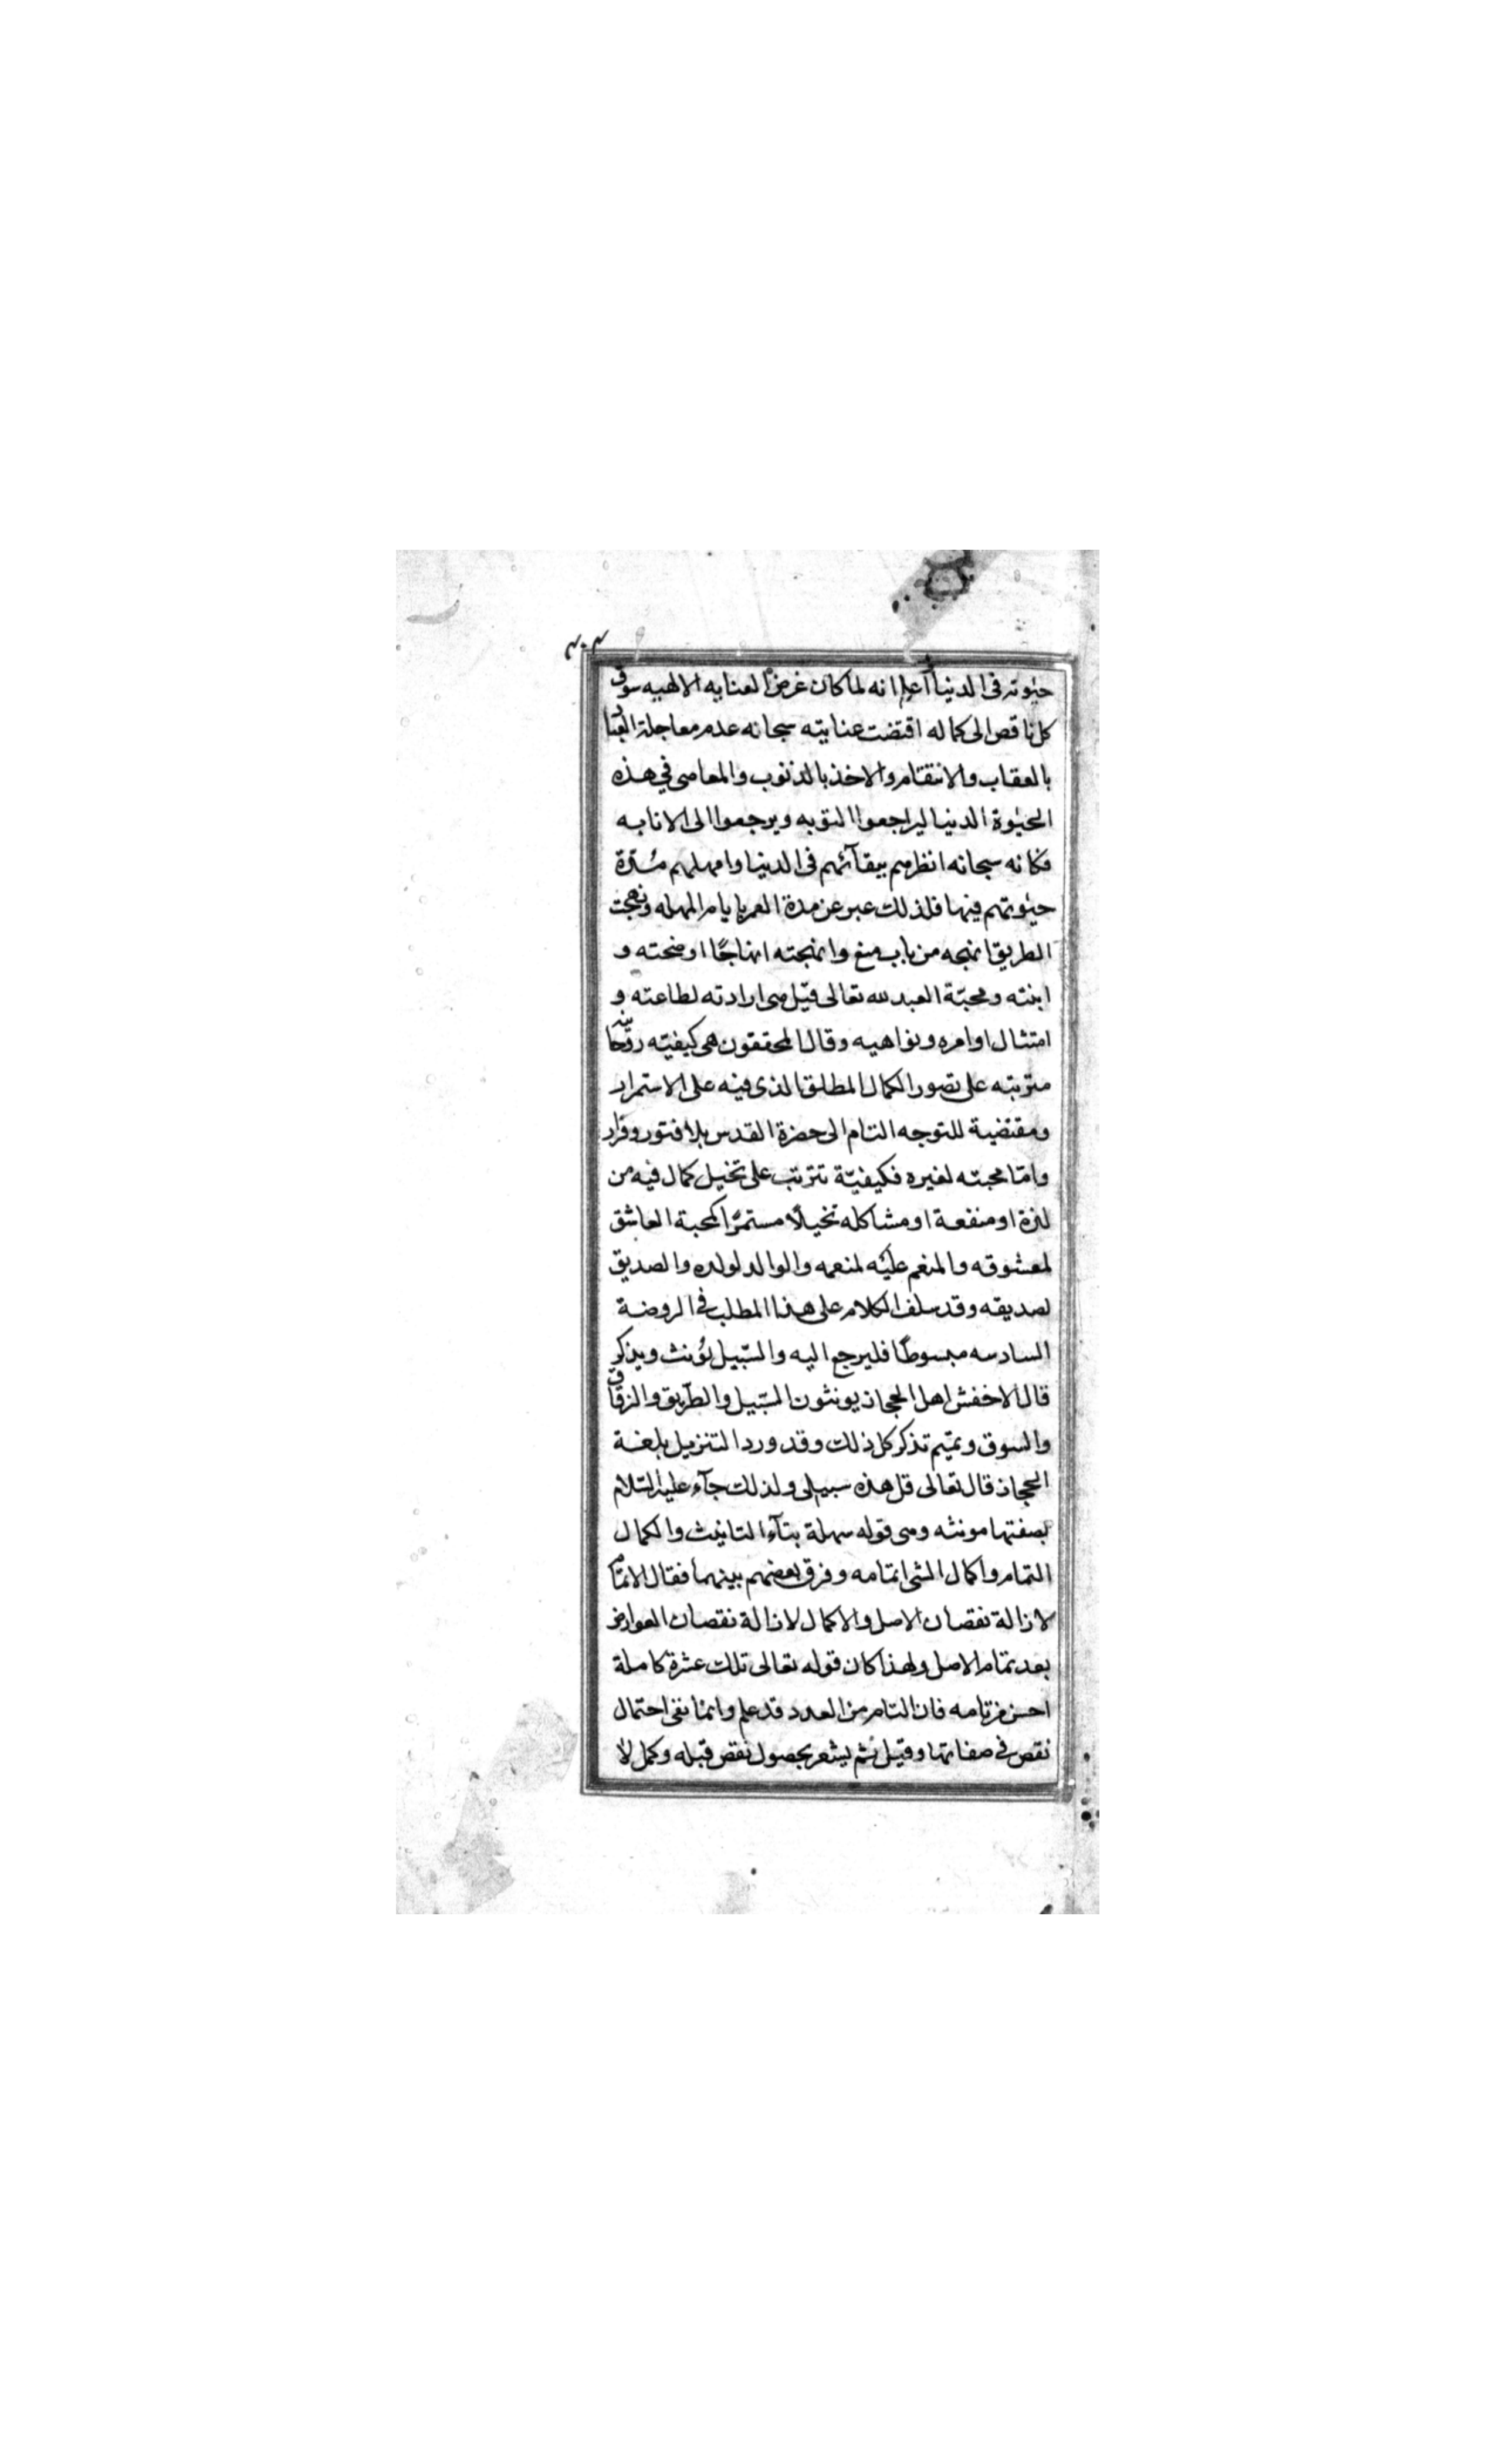 حيٰوته فى الدنيا اعلم انه لما كان غرض العنايه الالهيه سوق
كل ناقص الى كماله اقتضت عنايته سبحانه عدم معاجلة العباد
بالعقاب والانتقام والاخذ بالذنوب والمعاصى في هذه
الحيٰوة الدنيا ليراجعوا التوبه ويرجعوا الى الانابه
فكانه سبحانه انظرهم ببقآئهم فى الدنيا وامهلهم مدّة
حيٰوتهم فيها فلذلك عبر عن مدة العمر بايام المهله ونهجت
الطريق انهجه من باب منع وانهجته انهاجًا اوضحته و
ابنته ومحبّة العبد لله تعالى قيل هى ارادته لطاعته و
امتثال اوامره ونواهيه وقال المحققون هى كيفيّه روحانيّه
مترتبه على تصور الكمال المطلق الذى فيه على الاستمرار
ومقتضية للتوجه التام الى حضرة القدس بلا فتور وفرار
وامّا محبته لغيره فكيفيّة تترتب على تخيل كمال فيه من
لذة او منفعة او مشاكله تخيلًا مستمرًا كمحبة العاشق
لمعشوقه والمنعم عليه لمنعمه والوالد لولده والصديق
لصديقه وقد سلف الكلام على هذا المطلب فى الروضة
السادسه مبسوطًا فليرجع اليه والسّبيل يؤنث ويذكر
قال الاخفش اهل الحجاز يونثون السّبيل والطّريق والزقاق
والسوق وتميم تذكر كل ذلك وقد ورد التنزيل بلغة
الحجاز قال تعالى قل هذه سبيلى ولذلك جآء عليه السّلام
بصفتها مونثه وهى قوله سهلة بتآء التانيث والكمال
التمام واكمال الشى اتمامه وفرق بعضهم بينهما فقال الاتمام
لازالة نقصان الاصل والاكمال لازالة نقصان العوارض
بعد تمام الاصل ولهذا كان قوله تعالى تلك عشرة كاملة
احسن من تامه فان التام من العدد قد علم وانما نفى احتمال
نقص فى صفاتها وقيل تم يشعر بحصول نقص قبله وكمل لا